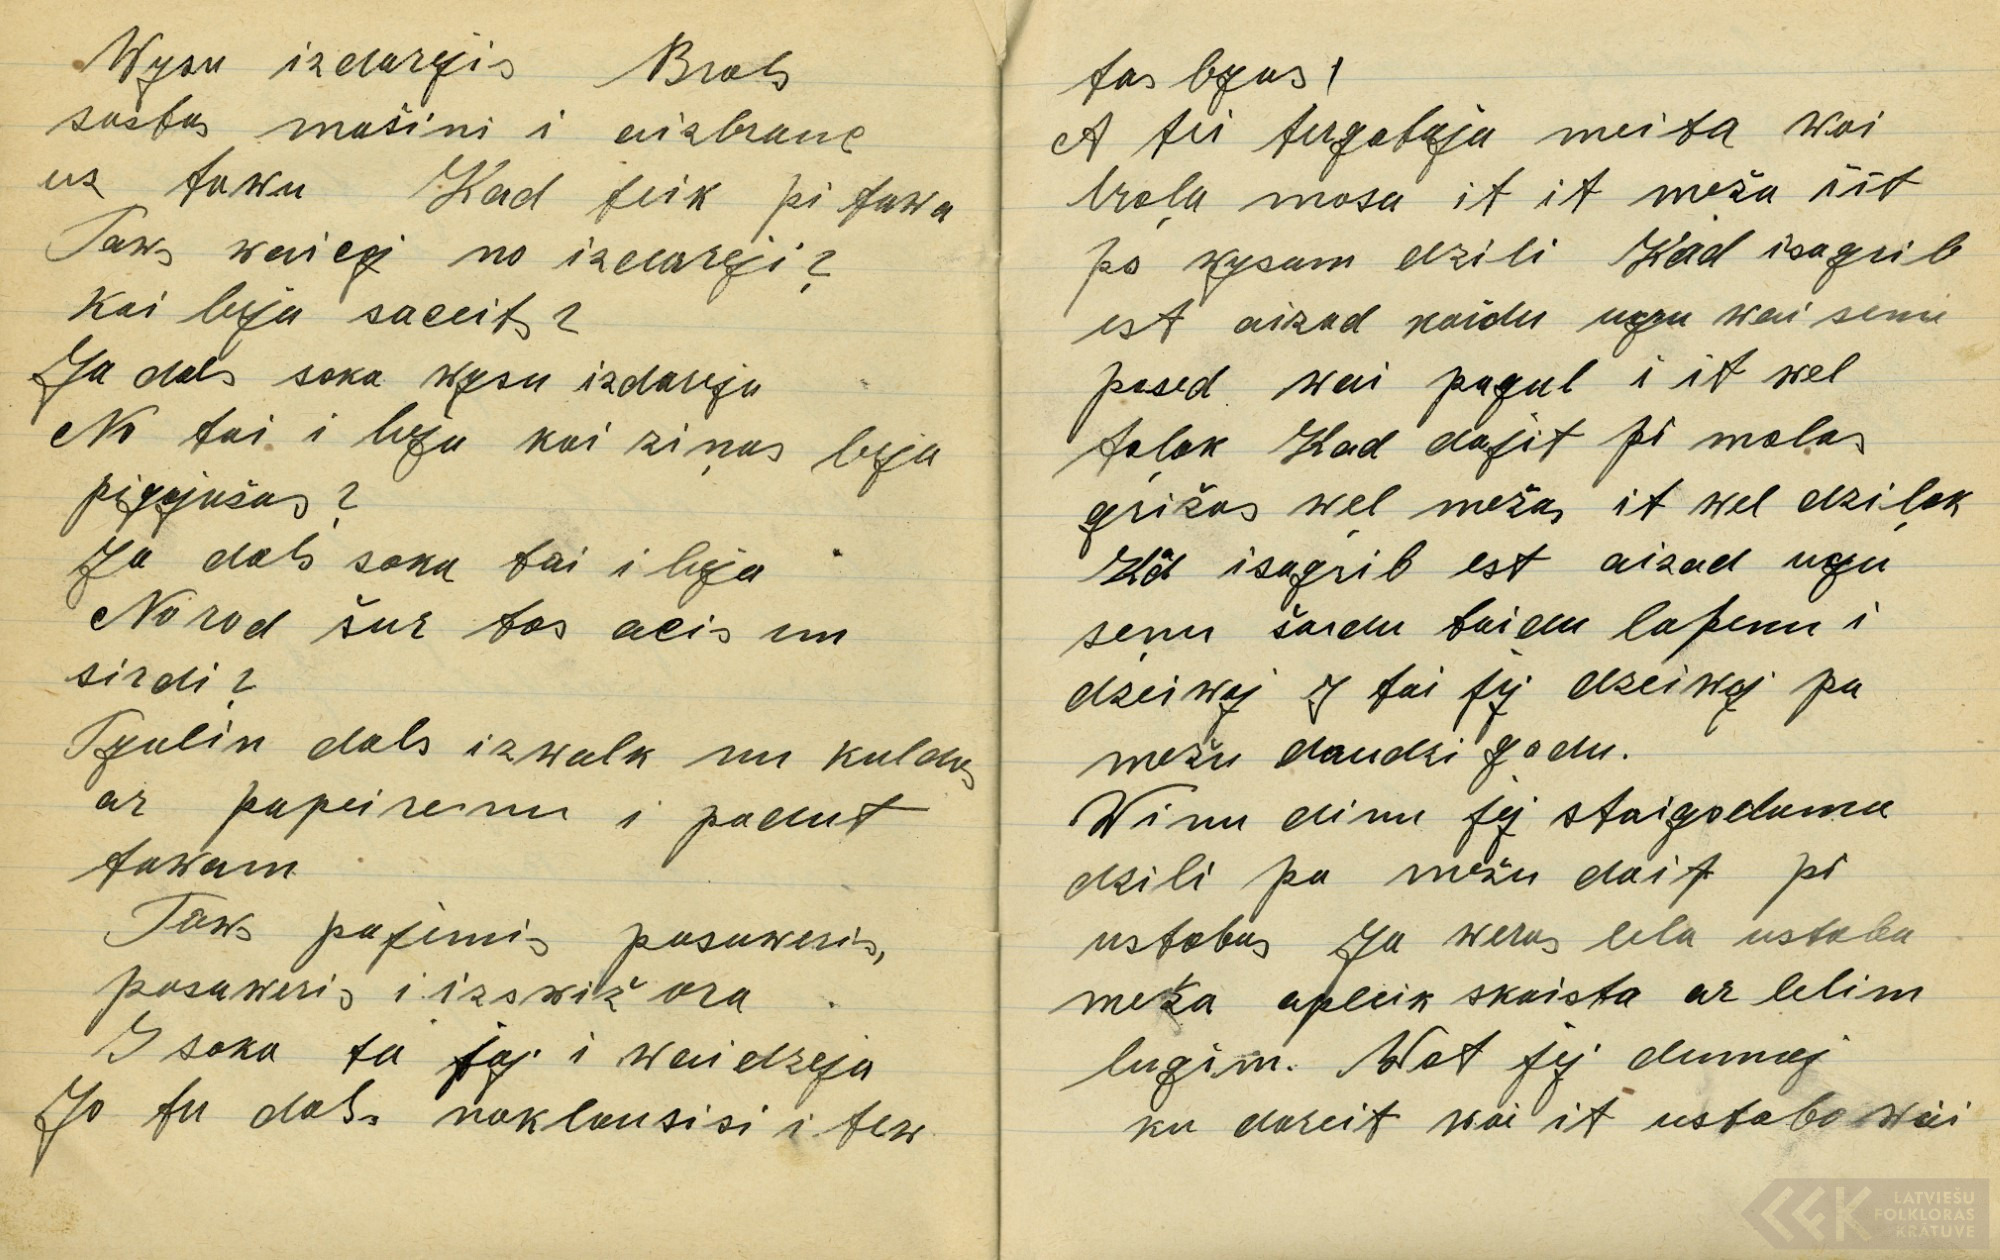 Wysu izdarejis Brols
sastas mašini i aizbrauc
us tawu Kad teik pi tawa
Taws waicej no izdareji?
Kai beja saceits?
Ja dals soka wysu izdareju
No tai i beja kai ziņas beja
pigojušas?
Ja dals soka tai i beja
No rod šur tos acis un
sirdi?
Tyulin dals izwalk nu kuldas
ar papeirenu i padut
tawam
Taws pajemis pasaweris,
pasaweris i izswiž ora
I soka tä jai i waidzeja
Jo tu dals naklausisi i tew
tas byus!
A tei tergotaja meita woi
broļa mosa it it meža iit
po wysam dzili Kad isagrib
est aizad kaidu ugu wai senu
pased wai pagul i it wel
toļok Kad dajit pi molas
grižas wel mežas it wel dziļok
Kad isagrib est aizad ugu
seņu šaidu taidu lapenu i
dzeiwoj I tai jej dzeiwoj pa
mežu daudzi godu.
Winu dinu jej staigodama
dzili pa mežu dait pi
ustobas Ja weras lela ustoba
meža apleik skaista ar lelim
lugim. Wot jej dumoj
ku dareit woi it ustobo wai
LATVIEŠU
FOLKLORAS
KRĀTUVE